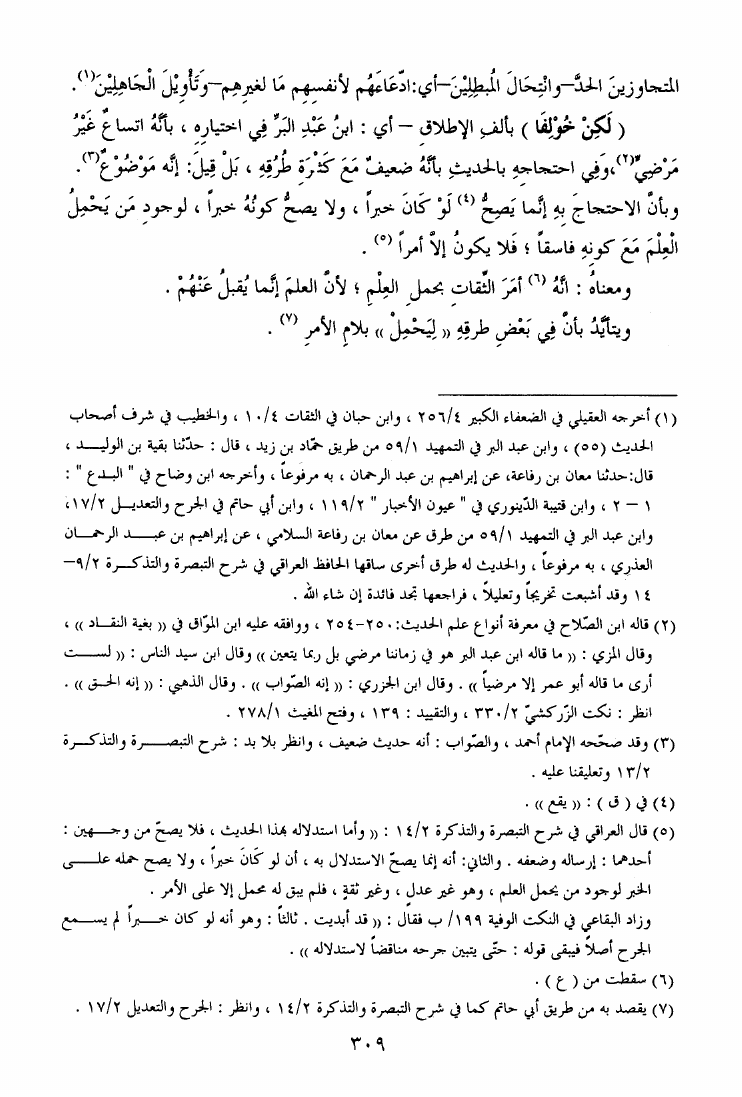 المتجاوزينَ الحدَّ–وانْتِحَالَ المُبطِلِيْنَ–أي:ادّعَاءَهُم لأنفسِهِم مَا لغيرِهِم–وَتَأْوِيْلَ الْجَاهِلِيْنَ(١).
( لَكِنْ خُوْلِفَا ) بألفِ الإطلاقِ – أي : ابنُ عَبْدِ البَرِّ فِي اختيارِهِ ، بأنَّهُ اتساعٌ غَيْرُ
مَرْضِيٍّ(٢)،وَفِي احتجاجِهِ بالحديثِ بأنَّهُ ضعيفٌ مَعَ كَثْرَةِ طُرُقِهِ ، بَلْ قِيلَ: إنَّه مَوْضُوْعٌ(٣).
وبأنَّ الاحتجاجَ بِهِ إنَّما يَصِحُّ (٤) لَوْ كَانَ خبراً ، ولا يصحُّ كونُهُ خبراً ، لوجودِ مَن يَحْمِلُ
الْعِلْمَ مَعَ كونِهِ فاسقاً ؛ فَلا يكونُ إلاَّ أمراً (٥) .
ومعناهُ : أنَّهُ (٦) أمَرَ الثِّقاتِ بحملِ العِلْمِ ؛ لأنَّ العلمَ إنَّما يُقبلُ عَنْهُمْ .
ويتأيَّدُ بأنَّ فِي بَعْضِ طرقِهِ (( لِيَحْمِلْ )) بلامِ الأمرِ (٧) .
(١) أخرجه العقيلي في الضعفاء الكبير ٢٥٦/٤ ، وابن حبان في الثقات ١٠/٤ ، والخطيب في شرف أصحاب
الحديث (٥٥) ، وابن عبد البر في التمهيد ٥٩/١ من طريق حمّاد بن زيد ، قال : حدّثنا بقية بن الوليـــد ،
قال:حدثنا معان بن رفاعة، عن إبراهيم بن عبد الرحمان ، به مرفوعاً ، وأخرجه ابن وضاح في " البـدع " :
١ – ٢ ، وابن قتيبة الدّينوري في " عيون الأخبار " ١١٩/٢ ، وابن أبي حاتم في الجرح والتعديــل ١٧/٢،
وابن عبد البر في التمهيد ٥٩/١ من طرق عن معان بن رفاعة السلامي ، عن إبراهيم بن عبـــد الرحمـــان
العذري ، به مرفوعاً ، والحديث له طرق أخرى ساقها الحافظ العراقي في شرح التبصرة والتذكــرة ٩/٢–
١٤ وقد أشبعت تخريجاً وتعليلاً ، فراجعها تجد فائدة إن شاء الله .
(٢) قاله ابن الصّلاح في معرفة أنواع علم الحديث:٢٥٠-٢٥٤ ، ووافقه عليه ابن الموّاق في (( بغية النقـاد )) ،
وقال المزي : (( ما قاله ابن عبد البر هو في زماننا مرضي بل ربما يتعين )) وقال ابن سيد الناس : (( لســت
أرى ما قاله أبو عمر إلا مرضياً )) . وقال ابن الجزري : (( إنه الصّواب )) . وقال الذهبي : (( إنه الحـق )) .
انظر : نكت الزّركشيّ ٣٣٠/٢ ، والتقييد : ١٣٩ ، وفتح المغيث ٢٧٨/١ .
(٣) وقد صحّحه الإمام أحمد ، والصّواب : أنه حديث ضعيف ، وانظر بلا بد : شرح التبصـــرة والتذكـــرة
١٣/٢ وتعليقنا عليه .
(٤) في ( ق ) : (( يقع )) .
(٥) قال العراقي في شرح التبصرة والتذكرة ١٤/٢ : (( وأما استدلاله بهذا الحديث ، فلا يصحّ من وجـــهين :
أحدهما : إرساله وضعفه . والثاني: أنه إنما يصحّ الاستدلال به ، أن لو كَانَ خبراً ، ولا يصح حمله علـــى
الخبر لوجود من يحمل العلم ، وهو غير عدل ، وغير ثقةٍ ، فلم يبق له محمل إلا على الأمر .
وزاد البقاعي في النكت الوفية ١٩٩/ ب فقال : (( قد أبديت . ثالثاً : وهو أنه لو كان خـــبراً لم يســـمع
الجرح أصلاً فيبقى قوله : حتّى يتبين جرحه مناقضاً لاستدلاله )) .
(٦) سقطت من ( ع ) .
(٧) يقصد به من طريق أبي حاتم كما في شرح التبصرة والتذكرة ١٤/٢ ، وانظر : الجرح والتعديل ١٧/٢ .
٣٠٩